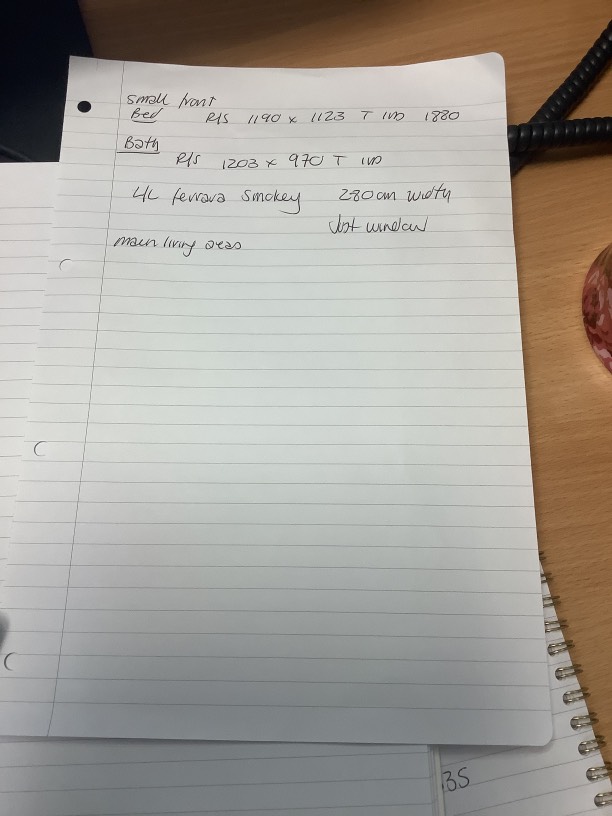 small front
Bed R/S 1190 x 1123 T IVD 1880
Bath
R/S 1203 x 970 T IVD
4L ferrara smokey 280cm width
window
main living areas
35